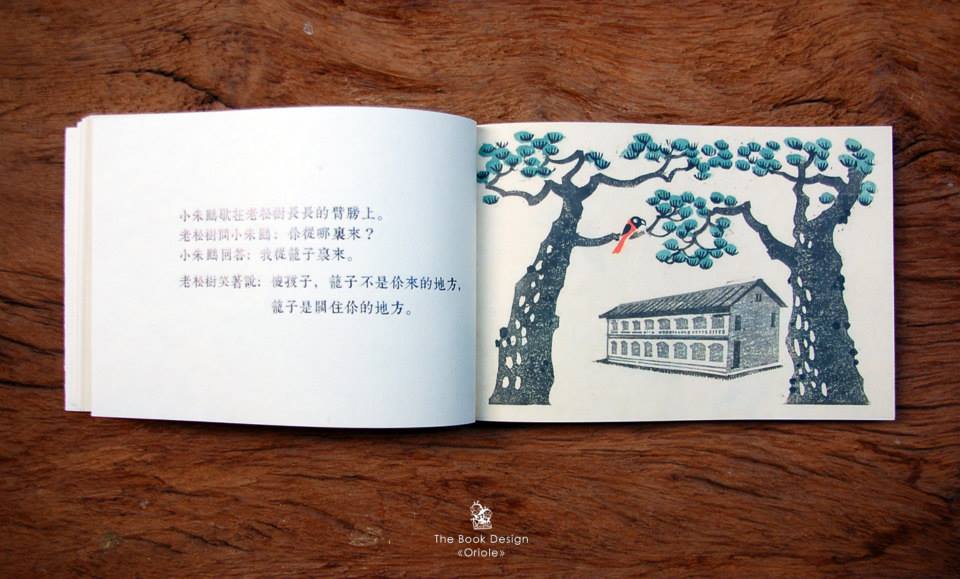 小朱鸝歇在老松樹長長的臂膀上。
老松樹問小朱鸝：你從哪裏來？
小朱鸝回答：我從籠子裏來。
老松樹笑著說：傻孩子，籠子不是你來的地方，
籠子是關住你的地方。
The Book Design
《Oriole》